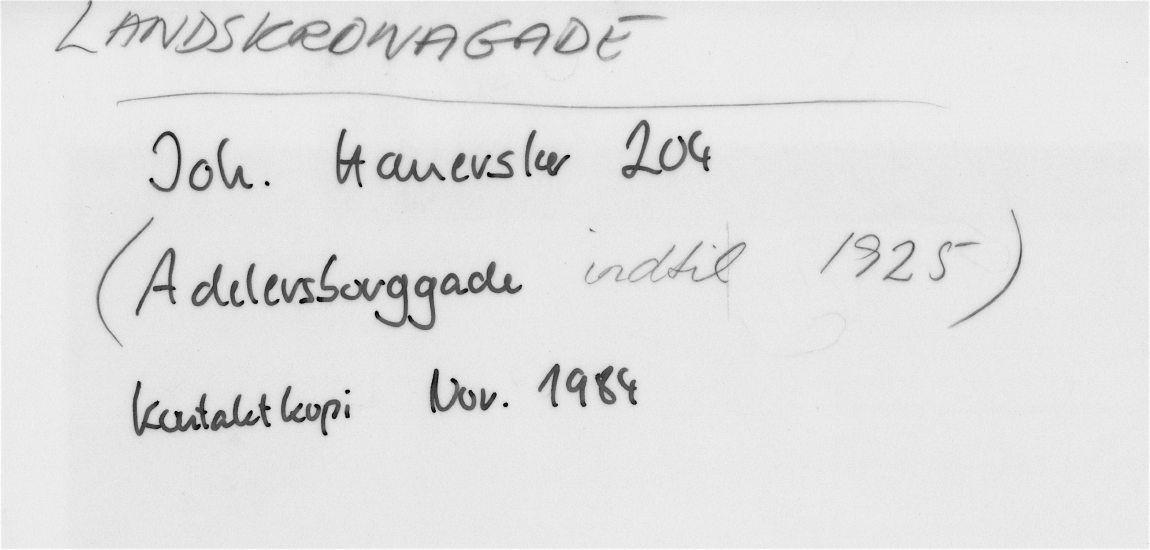 LANDSKRONAGADE
Joh. Hauerslev 204
(Adelersborggade indtil 1925)
Kontaktkopi Nov. 1984